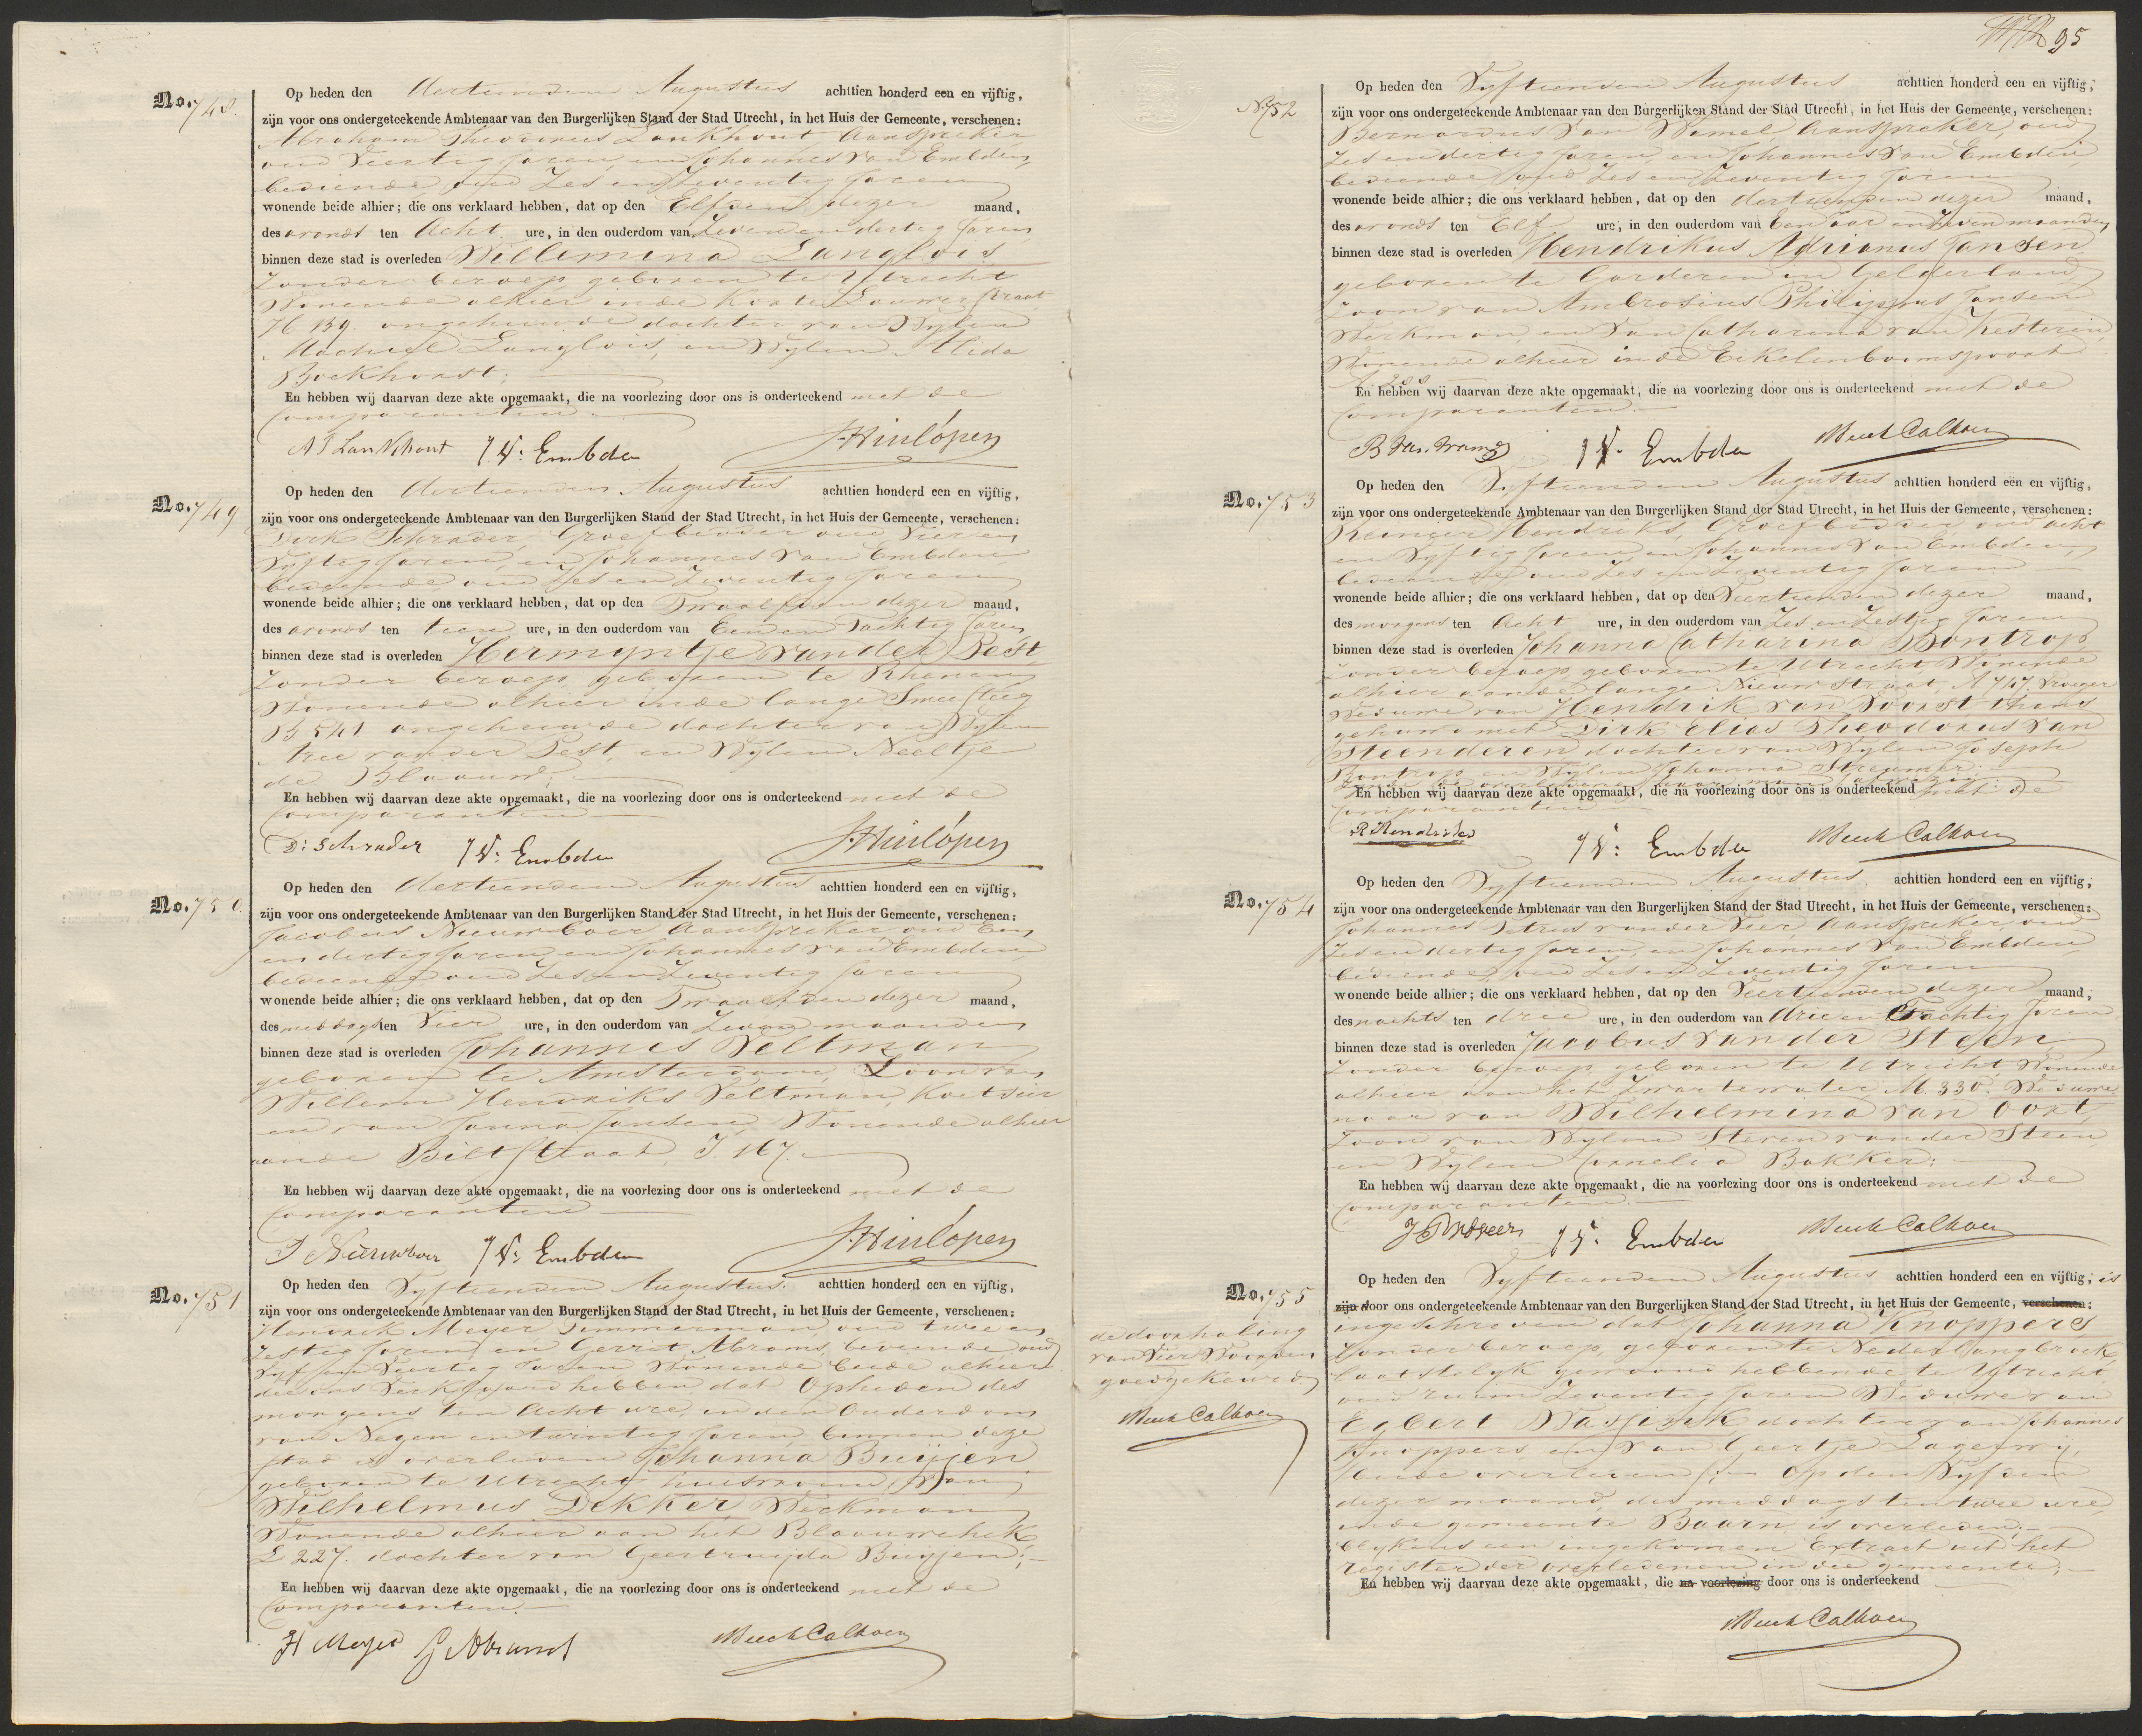 No. 748.
Op heden den dertienden Augustus achttien honderd een en vijftig,
zijn voor ons ondergeteekende Ambtenaar van den Burgerlijken Stand der Stad Utrecht, in het Huis der Gemeente, verschenen:
Abraham Theodorus Lankhout Aanspreker
oud Veertig Jaren, en Johannes van Embden
bediende oud Zes en Zeventig Jaren
wonende beide alhier; die ons verklaard hebben, dat op den Elfden dezer maand,
des avonds ten Acht ure, in den ouderdom van Zeven en dertig Jaren
binnen deze stad is overleden Willemina Langlois
Zonder beroep, geboren te Utrecht
Wonende alhier in de Korte Lauwerstraat
H 139. ongehuwde dochter van Wylen
Machiel Langlois, en Wylen Alida
Bockhorst;
En hebben wij daarvan deze akte opgemaakt, die na voorlezing door ons is onderteekend met de
Comparanten.
A T Lankhout J V: Embden J. Hinlópen
No. 749
Op heden den dertienden Augustus achttien honderd een en vijftig,
zijn voor ons ondergeteekende Ambtenaar van den Burgerlijken Stand der Stad Utrecht, in het Huis der Gemeente, verschenen:
Dirk Schrader, Groefbidder oud Vier en
Vyftig Jaren, en Johannes van Embden
bediende oud Zes en Zeventig Jaren
wonende beide alhier; die ons verklaard hebben, dat op den Twaalfden dezer maand,
des avonds ten tien ure, in den ouderdom van Een en Tachtig Jaren
binnen deze stad is overleden Hermyntje van der Pest
Zonder beroep, geboren te Rhenen
Wonende alhier in de lange Smeesteeg
B 541 ongehuwde dochter van Wylen
Arie van der Pest, en Wylen Neeltje
de Blaauw;
En hebben wij daarvan deze akte opgemaakt, die na voorlezing door ons is onderteekend met de
Comparanten
D: Schrader J V: Embden J. Hinlópen
No. 750
Op heden den dertienden Augustus achttien honderd een en vijftig,
zijn voor ons ondergeteekende Ambtenaar van den Burgerlijken Stand der Stad Utrecht, in het Huis der Gemeente, verschenen:
Jacobus Nieuwboer Aanspreker, oud Een
en dertig Jaren, en Johannes van Embden
bediende oud Zes en Zeventig Jaren
wonende beide alhier; die ons verklaard hebben, dat op den Twaalfden dezer maand,
des middags ten Vier ure, in den ouderdom van Zeven maanden
binnen deze stad is overleden Johannes Veltman
geboren te Amsterdam, Zoon van
Willem Hendriks Veltman, Koetsier
en van Janna Jansen, Wonende alhier
aan de Biltstraat, J. 167.
En hebben wij daarvan deze akte opgemaakt, die na voorlezing door ons is onderteekend met de
Comparanten
J Nieuwboer J V: Embden J. Hinlópen
No. 751
Op heden den Vyftienden Augustus. achttien honderd een en vijftig,
zijn voor ons ondergeteekende Ambtenaar van den Burgerlijken Stand der Stad Utrecht, in het Huis der Gemeente, verschenen:
Hendrik Meyer Timmerman, oud twee en
Zestig Jaren, en Gerrit Abrams, bediende, oud
Vyf en Veertig Jaren Wonende beide alhier
die ons Verklaard hebben, dat Op heden des
morgens ten Acht ure, in den Ouderdom
van Negen en twintig Jaren, binnen deze
stad is overleden Johanna Buijen
geboren te Utrecht huisvrouw van
Wilhelmus Dekker Werkman
Wonende alhier aan het Blaauwehek
L 227. dochter van Geertruijda Buijen;
En hebben wij daarvan deze akte opgemaakt, die na voorlezing door ons is onderteekend met de
Comparanten.
H Meyer G Abrams Beeck Calkoen
95
No 752
Op heden den Vyftienden Augustus achttien honderd een en vijftig,
zijn voor ons ondergeteekende Ambtenaar van den Burgerlijken Stand der Stad Utrecht, in het Huis der Gemeente, verschenen:
Bernardus van Wamel Aanspreker, oud
Zes en dertig Jaren, en Johannes van Embden
bediende oud Zes en Zeventig Jaren
wonende beide alhier; die ons verklaard hebben, dat op den dertienden dezer maand,
des avonds ten Elf ure, in den ouderdom van Een Jaar en Zeven maanden
binnen deze stad is overleden Hendrikus Adrianus Jansen
geboren te Garderen in Gelderland
Zoon van Ambrosius Philippus Jansen
Werkman, en van Catharina van Kesteren,
Wonende alhier in de Eekelenboomspoort
En hebben wij daarvan deze akte opgemaakt, die na voorlezing door ons is onderteekend met de
Comparanten.
B van Wamel J V. Embden Beeck Calkoen
No. 753
Op heden den Vyftienden Augustus achttien honderd een en vijftig,
zijn voor ons ondergeteekende Ambtenaar van den Burgerlijken Stand der Stad Utrecht, in het Huis der Gemeente, verschenen:
Reinier Hendriks, Groefbidder, oud acht
en Vyftig Jaren en Johannes van Embden,
bediende oud Zes en Zeventig Jaren
wonende beide alhier; die ons verklaard hebben, dat op den Veertienden dezer maand,
des morgens ten Acht ure, in den ouderdom van Zes en Zestig Jaren
binnen deze stad is overleden Johanna Catharina Bontrop
Zonder beroep, geboren te Utrecht Wonende
alhier aan de lange Nieuwstraat, A. 747. Vroeger
Weduwe van Hendrik van Voorst thans
gehuwd met Dirk Elias Theodorus van
Steenderen dochter van Wylen Joseph
Bontrop en Wylen Johanna Streumer;
En hebben wij daarvan deze akte opgemaakt, die na voorlezing door ons is onderteekend met de
Comparanten
R Hendriks J V: Embden Beeck Calkoen
No. 754
Op heden den Vyftienden Augustus achttien honderd een en vijftig,
zijn voor ons ondergeteekende Ambtenaar van den Burgerlijken Stand der Stad Utrecht, in het Huis der Gemeente, verschenen:
Johannes Petrus van der Veer, Aanspreker, oud
Zes en dertig Jaren, en Johannes van Embden
bediende, oud Zes en Zeventig Jaren
wonende beide alhier; die ons verklaard hebben, dat op den Veertienden dezer maand,
des nachts ten drie ure, in den ouderdom van drie en Tachtig Jaren
binnen deze stad is overleden Jacobus van der Steen
Zonder beroep, geboren te Utrecht, Wonende
alhier aan het Zwartewater, M. 330. Weduwe
naar van Wilhelmina van Oort,
Zoon van Wylen Steven van der Steen
en Wylen Cornelia Bakker;
En hebben wij daarvan deze akte opgemaakt, die na voorlezing door ons is onderteekend met de
Comparanten.
J P v d Veer J V. Embden Beeck Calkoen
No. 755
Op heden den Vyftienden Augustus achttien honderd een en vijftig, is
zijn voor ons ondergeteekende Ambtenaar van den Burgerlijken Stand der Stad Utrecht, in het Huis der Gemeente, verschenen:
ingeschreven dat Johanna Knoppers
Zonder beroep, geboren te Nederlangbroek,
laatstelyk gewoond hebbende te Utrecht
oud ruim Zeventig Jaren Weduwe van
Egbert dochter van Johannes
Knoppers en van Geertje Lagerwey,
beide overleden; Op den Vyfden
dezer maand, des middags ten twee ure
in de gemeente Baarn is overleden;
blykens een ingekomen Extract uit het
register der overledenen in die gemeente;
En hebben wij daarvan deze akte opgemaakt, die na voorlezing door ons is onderteekend
de doorhaling
van Vier Woorden
goedgekeurd
Beeck Calkoen
Beeck Calkoen